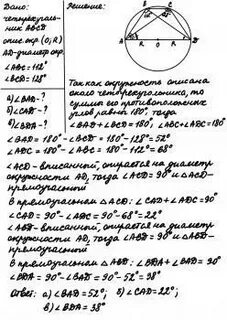 Дано:
четырехуголь-
ник ABCD
опис. окр (O; R)
AD-диаметр окр.
∠ABC=112°
∠BCD=128°
а) ∠BAD-?
б) ∠CAD-?
в) ∠BDA-?
Решение:
B
C
112°
128°
A
R
O
R
D
Так как окружность описана
около четырехугольника, то
сумма его противоположных
углов равна 180°, тогда
∠BAD+∠BCD=180°, ∠ABC+∠ADC=180°
∠BAD=180°-∠BCD=180°-128°=52°
∠ADC=180°-∠ABC=180°-112°=68°
∠ACD-вписанный, опирается на диаметр
окружности AD, тогда ∠ACD=90° и △ACD-
прямоугольной
В прямоугольном △ACD: ∠CAD+∠ADC=90°
∠CAD=90°-∠ADC=90°-68°=22°
∠ABD-вписанный, опирается на диаметр
окружности AD, тогда ∠ABD=90° и △ABD-
прямоугольной
В прямоугольном △ABD: ∠BDA+∠BAD=90°
∠BDA=90°-∠BAD=90°-52°=38°
Ответ: а) ∠BAD=52°; б) ∠CAD=22°;
в) ∠BDA=38°